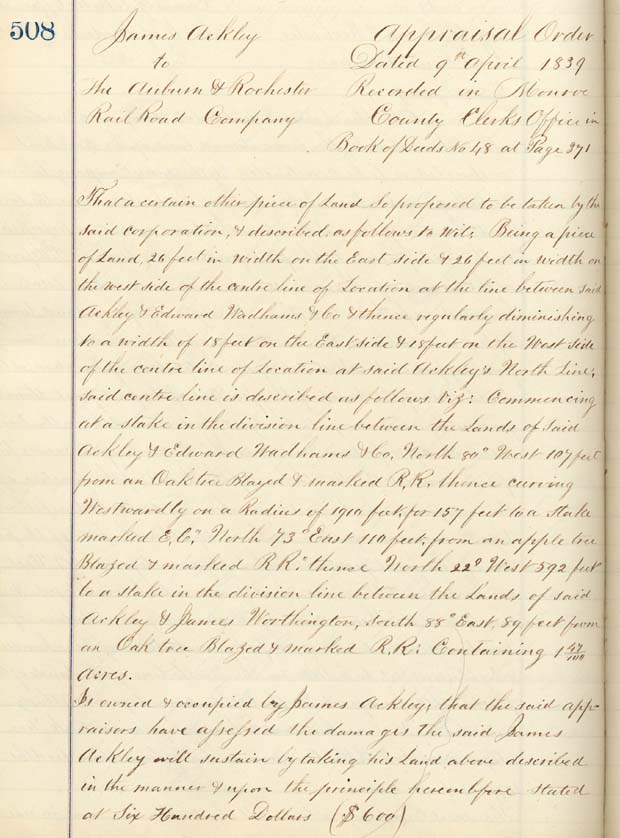 508
James Ackley Appraisal Order
to Dated 9th April 1839
The Auburn & Rochester Recorded in Monroe
Rail Road Company County Clerks Office in
Book of Deeds No 48 at Page 371
That a certain other piece of Land so proposed to be taken by the
said corporation, & described as follows to Wit: Being a piece
of Land, 26 feet in width on the East side & 26 feet in width on
the west side of the centre line of Location at the line between said
Ackley & Edward Wadhams & Co & thence regularly diminishing
to a width of 18 feet on the East side & 18 feet on the West side
of the centre line of Location at said Ackley's North Line,
said centre line is described as follows Viz: Commencing
at a stake in the division line between the Lands of said
Ackley & Edward Wadhams & Co, North 80° West 107 feet
from an Oak tree Blazed & marked R.R. thence curving
Westwardly on a Radius of 1910 feet, for 157 feet to a Stake
marked E.C." North 73° East 110 feet, from an apple tree
Blazed & marked R R." thence North 22° West 592 feet
to a stake in the division line between the Lands of said
Ackley & James Worthington, South 88° East, 89 feet from
an Oak tree Blazed & marked R.R: Containing 1 47/100
Acres.
Is owned & occupied by James Ackley, that the said app-
raisers have assessed the damages the said James
Ackley will sustain by taking his Land above described
in the manner & upon the principle hereinbefore stated
at Six Hundred Dollars ($600)